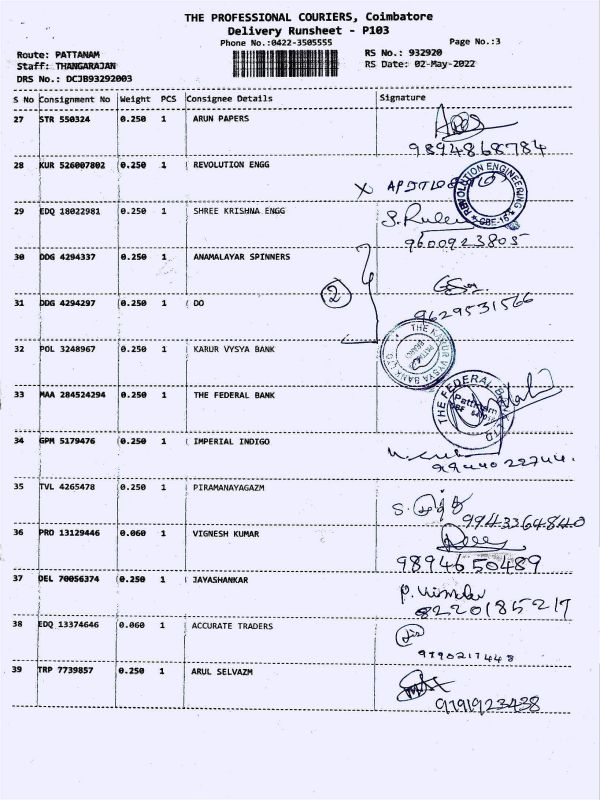 THE PROFESSIONAL COURIERS, Coimbatore
Delivery Runsheet - P103
Phone No.:0422-3505555
Page No.:3
Route: PATTANAM
RS No.: 932920
Staff: THANGARAJAN
RS Date: 02-May-2022
DRS No.: DCJB93292003
S No Consignment No Weight PCS Consignee Details Signature
27 STR 550324 0.250 1 ARUN PAPERS
9894868784
28 KUR 526007802 0.250 1 REVOLUTION ENGG
REVOLUTION ENGINEERING
CBE-16
29 EDQ 18022981 0.250 1 SHREE KRISHNA ENGG
9600923805
30 DDG 4294337 0.250 1 ANAMALAYAR SPINNERS
2
31 DDG 4294297 0.250 1 DO
9629531566
32 POL 3248967 0.250 1 KARUR VYSYA BANK
THE KARUR VYSYA BANK LTD
33 MAA 284524294 0.250 1 THE FEDERAL BANK
THE FEDERAL BANK LTD
Pattanam
34 GPM 5179476 0.250 1 IMPERIAL INDIGO
9944022744.
35 TVL 4265478 0.250 1 PIRAMANAYAGAZM
9943364840
36 PRO 13129446 0.060 1 VIGNESH KUMAR
9894650489
37 DEL 70056374 0.250 1 JAYASHANKAR
8220185217
38 EDQ 13374646 0.060 1 ACCURATE TRADERS
9790217448
39 TRP 7739857 0.250 1 ARUL SELVAZM
9791923438